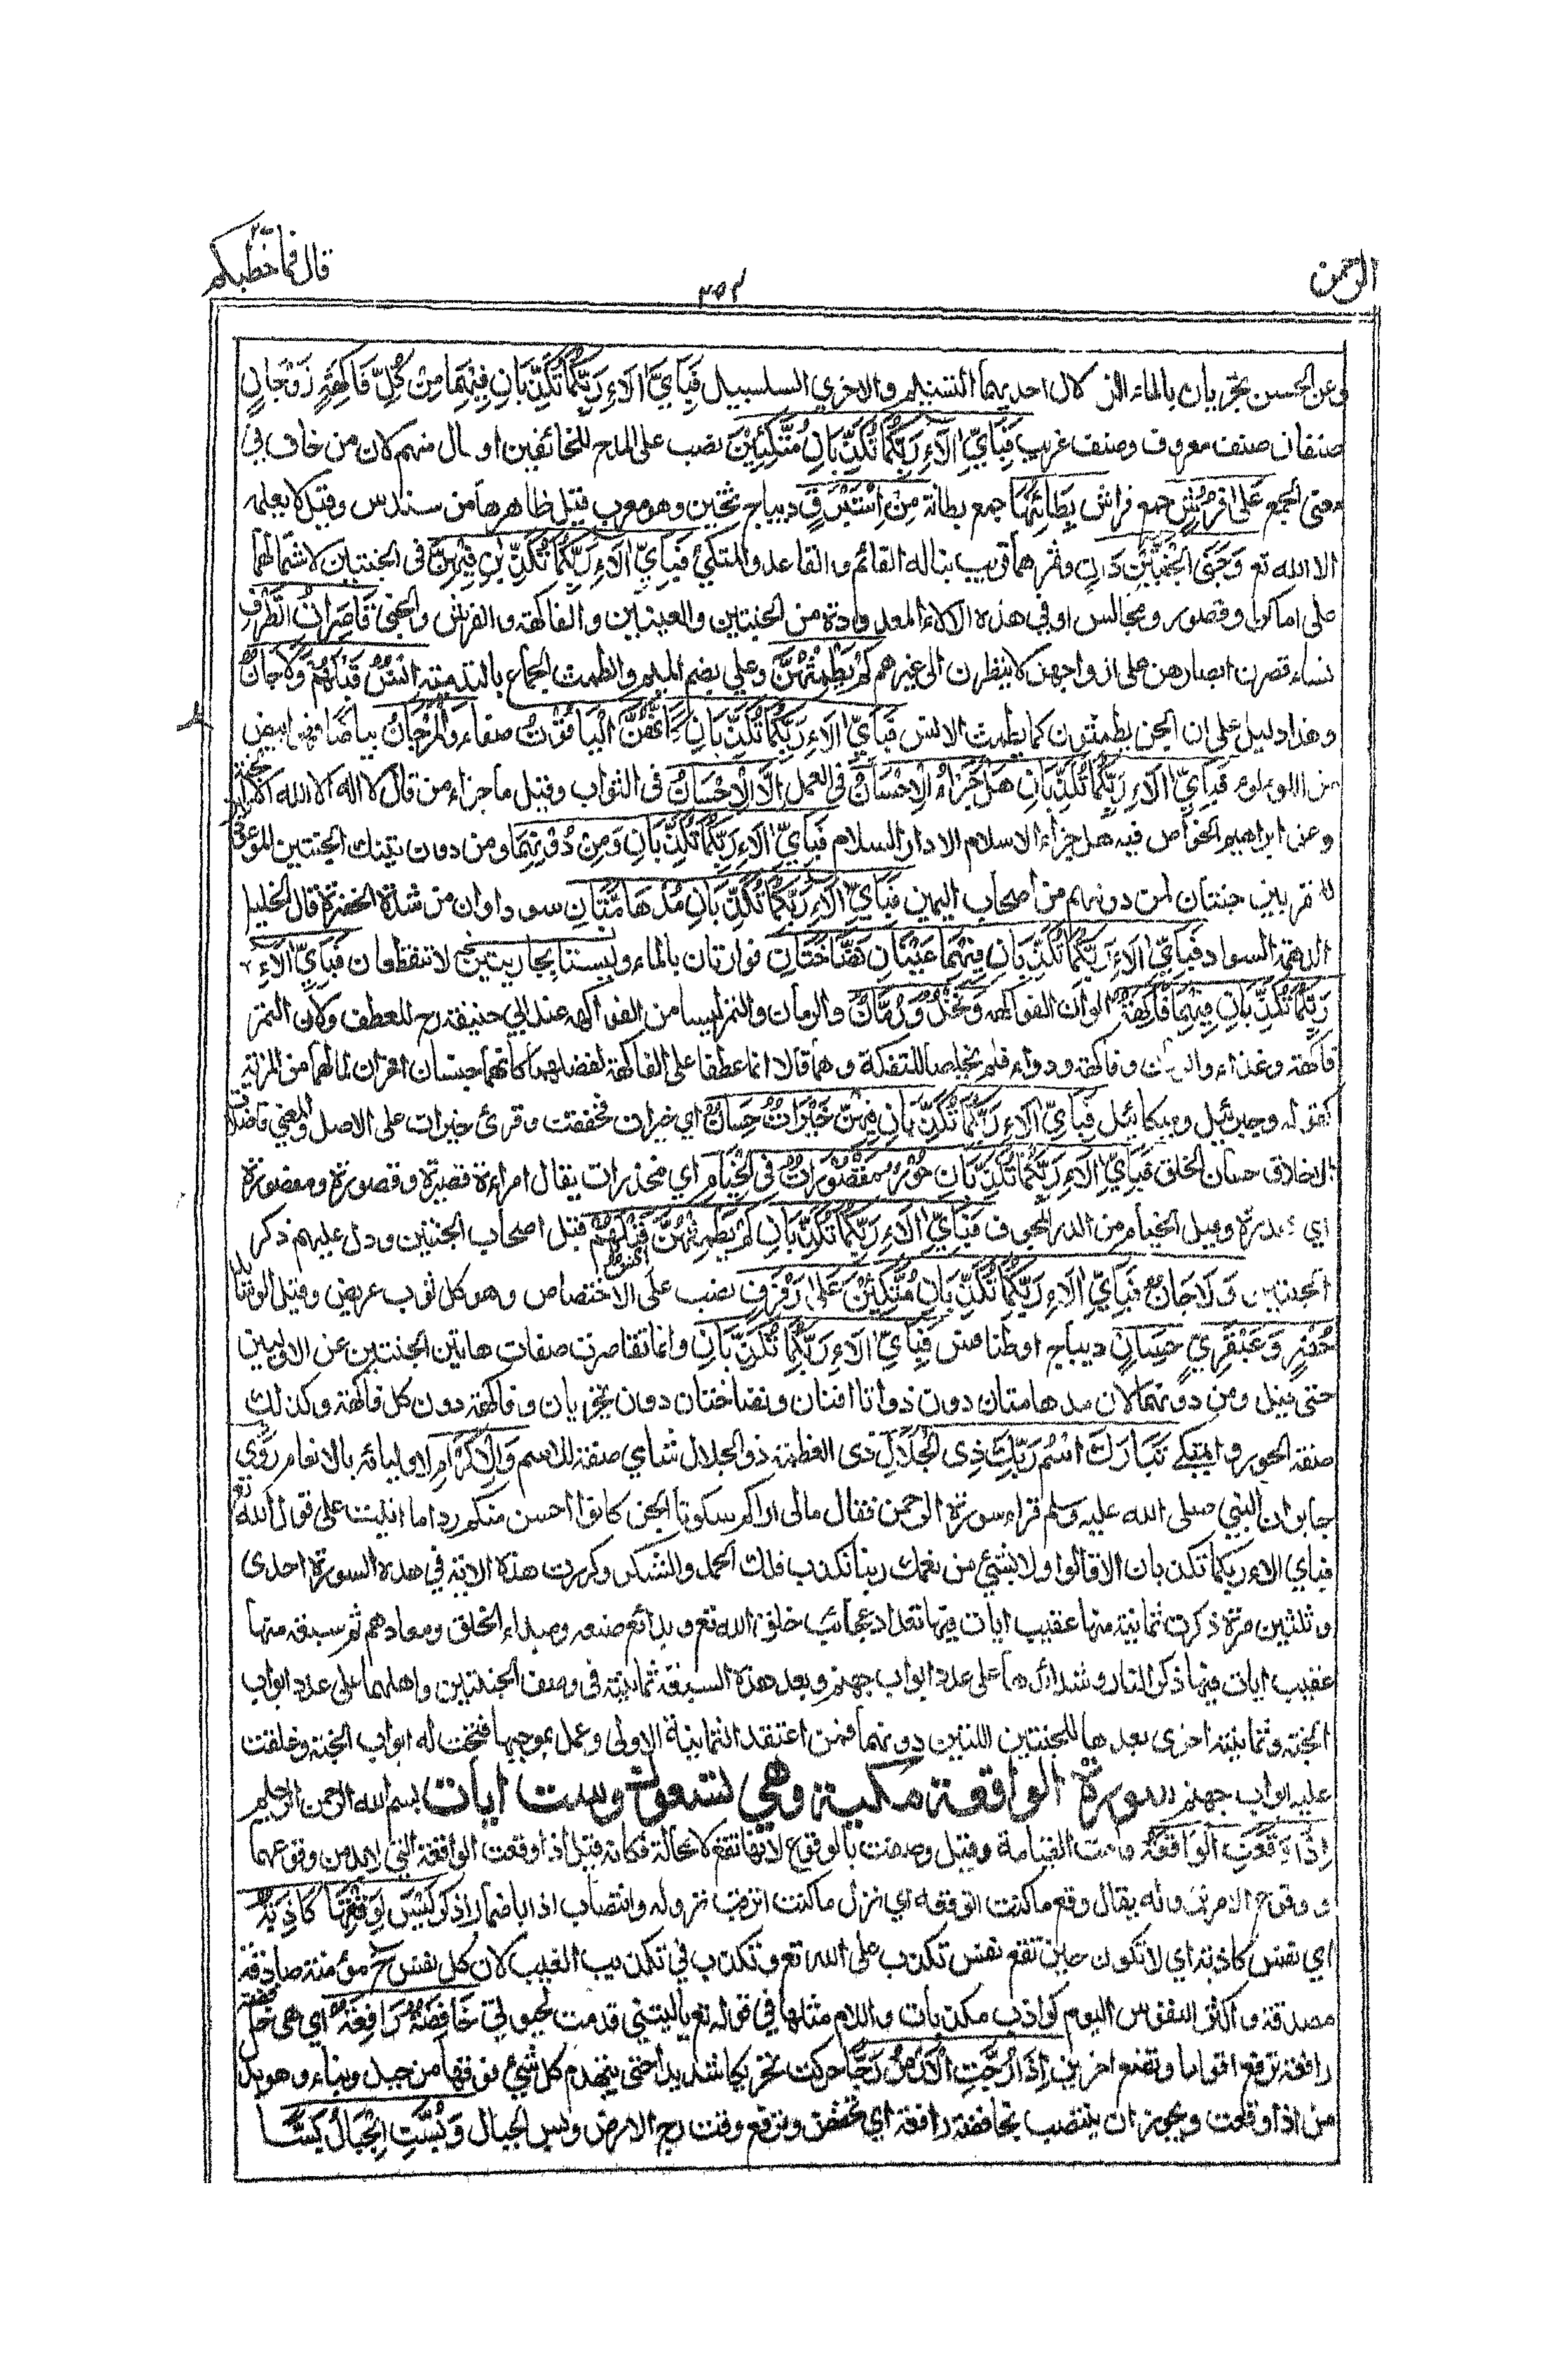 الرحمن
٣٥٢
قال فما خطبكم
وعن الحسن تجريان بالماء الزلال احديهما التسنيم والاخري السلسبيل فَبِاَيِّ اٰلَاءِ رَبِّكُمَا تُكَذِّبَانِ فِيْهِمَا مِنْ كُلِّ فَاكِهَةٍ زَوْجَانِ
صنفان صنف معروف وصنف غريب فَبِاَيِّ اٰلَاءِ رَبِّكُمَا تُكَذِّبَانِ مُتَّكِئِيْنَ نصب على المدح للخائفين او حال منهم لان من خاف في
معنى الجمع عَلٰى فُرُشٍ جمع فراش بَطَائِنُهَا جمع بطانة مِنْ اِسْتَبْرَقٍ ديباج ثخين وهو معرب قيل ظاهرها من سندس وقيل لا يعلمه
الا الله تع وَجَنَى الْجَنَّتَيْنِ دَانٍ وثمرهما قريب يناله القائم والقاعد والمتكئ فَبِاَيِّ اٰلَاءِ رَبِّكُمَا تُكَذِّبٰنِ فِيْهِنَّ فى الجنتين لاشتمالهما
على اماكن وقصور ومجالس او في هذه الالاء المعدودة من الجنتين والعينين والفاكهة والفرش والجنى قَاصِرَاتُ الطَّرْفِ
نساء قصرن ابصارهن على ازواجهن لا ينظرن الى غيرهم لَمْ يَطْمِثْهُنَّ وعلي بضم الميم والطمث الجماع بالتدمية اِنْسٌ قَبْلَهُمْ وَلَا جَانٌّ
وهذا دليل على ان الجن يطمثون كما يطمث الانس فَبِاَيِّ اٰلَاءِ رَبِّكُمَا تُكَذِّبَانِ كَاَنَّهُنَّ الْيَاقُوْتُ صفاء وَالْمَرْجَانُ بياضا فهى ابيض
من اللؤلؤ فَبِاَيِّ اٰلَاءِ رَبِّكُمَا تُكَذِّبَانِ هَلْ جَزَاءُ الْاِحْسَانِ فى العمل اِلَّا الْاِحْسَانُ فى الثواب وقيل ما جزاء من قال لا اله الا الله الا الجنة
وعن ابراهيم الخواص فيه هل جزاء الاسلام الا دار السلام فَبِاَيِّ اٰلَاءِ رَبِّكُمَا تُكَذِّبَانِ وَمِنْ دُوْنِهِمَا ومن دون تينك الجنتين الموعودتين
للمقربين جنتان لمن دونهم من اصحاب اليمين فَبِاَيِّ اٰلَاءِ رَبِّكُمَا تُكَذِّبَانِ مُدْهَامَّتَانِ سوداوان من شدة الخضرة قال الخليل
الدهمة السواد فَبِاَيِّ اٰلَاءِ رَبِّكُمَا تُكَذِّبَانِ فِيْهِمَا عَيْنَانِ نَضَّاخَتَانِ فوارتان بالماء وليستا بجاريتين لا تنقطعان فَبِاَيِّ اٰلَاءِ
رَبِّكُمَا تُكَذِّبَانِ فِيْهِمَا فَاكِهَةٌ الوان الفواكه وَنَخْلٌ وَرُمَّانٌ والرمان والتمر ليسا من الفواكه عند ابي حنيفة رح للعطف ولان التمر
فاكهة وغذاء والرمان وفاكهة ودواء فلم يخلصا للتفكه وهما قالا انما عطفا على الفاكهة لفضلهما كانهما جنسان اخران لما لهما من المزية
كقوله وجبرئيل وميكائيل فَبِاَيِّ اٰلَاءِ رَبِّكُمَا تُكَذِّبَانِ فِيْهِنَّ خَيْرَاتٌ حِسَانٌ اي خيرات فخففت وقرئ خيرات على الاصل والمعني فاضلات
الاخلاق حسان الخلق فَبِاَيِّ اٰلَاءِ رَبِّكُمَا تُكَذِّبَانِ حُوْرٌ مَقْصُوْرَاتٌ فِى الْخِيَامِ اي مخدرات يقال امراءة قصيرة وقصورة ومقصورة
اي مخدرة وقيل الخيام من الدر المجوف فَبِاَيِّ اٰلَاءِ رَبِّكُمَا تُكَذِّبَانِ لَمْ يَطْمِثْهُنَّ اِنْسٌ قَبْلَهُمْ قبل اصحاب الجنتين ودل عليهم ذكر
الجنتين وَلَا جَانٌّ فَبِاَيِّ اٰلَاءِ رَبِّكُمَا تُكَذِّبَانِ مُتَّكِئِيْنَ عَلٰى رَفْرَفٍ نصب على الاختصاص وهو كل ثوب عريض وقيل الوسائد
خُضْرٍ وَعَبْقَرِيٍّ حِسَانٍ ديباج او طنافس فَبِاَيِّ اٰلَاءِ رَبِّكُمَا تُكَذِّبَانِ وانما تقاصرت صفات هاتين الجنتين عن الاوليين
حتى قيل ومن دونهما لان مدهامتان دون ذواتا افنان ونضاختان دون تجريان وفاكهة دون كل فاكهة وكذلك
صفة الحور والمتكے تَبَارَكَ اسْمُ رَبِّكَ ذِى الْجَلَالِ ذى العظمة ذو الجلال شامي صفة للاسم وَالْاِكْرَامِ لاوليائه بالانعام روى
جابر ان النبي صلى الله عليه وسلم قراء سورة الرحمن فقال مالى اراكم سكوتا الجن كانوا احسن منكم ردا ما اتيت على قول الله تع
فباي الاء ربكما تكذبان الا قالوا ولا بشئ من نعمك ربنا نكذب فلك الحمد والشكر وكررت هذه الاية في هذه السورة احدى
وثلثين مرة ذكرت ثمانية منها عقيب ايات فيها تعداد عجائب خلق الله تع وبدائع صنعه ومبداء الخلق ومعادهم ثم سبعة منها
عقيب ايات فيها ذكر النار وشدائدها على عدد ابواب جهنم وبعد هذه السبعة ثمانية فى وصف الجنتين واهلهما على عدد ابواب
الجنة وثمانية اخرى بعدها للجنتين اللتين دونهما فمن اعتقد الثمانية الاولى وعمل بموجبها فتحت له ابواب الجنة وغلقت
عليه ابواب جهنم سورة الواقعة مكية وهي تسعون وست ايات بسم الله الرحمن الرحيم
اِذَا وَقَعَتِ الْوَاقِعَةُ قامت القيامة وقيل وصفت بالوقوع لانها تقع لا محالة فكانه قيل اذا وقعت الواقعة التي لابد من وقوعها
ووقوع الامر نزوله يقال وقع ما كنت اتوقعه اي نزل ما كنت اترقب نزوله وانتصاب اذا باضمار اذكر لَيْسَ لِوَقْعَتِهَا كَاذِبَةٌ
اي نفس كاذبة اي لا تكون حين تقع نفس تكذب على الله تع وتكذب في تكذيب الغيب لان كل نفس ح مؤمنة صادقة
مصدقة واكثر النفوس اليوم كواذب مكذبات واللام مثلها في قوله تع ياليتني قدمت لحيوتي خَافِضَةٌ رَافِعَةٌ اي هى خافضة
رافعة ترفع اقواما وتضع اخرين اِذَا رُجَّتِ الْاَرْضُ رَجًّا حركت تحريكا شديدا حتى ينهدم كل شئ فوقها من جبل وبناء وهو بدل
من اذا وقعت ويجوز ان ينتصب بخافضة رافعة اي تخفض وترفع وقت رج الارض وبس الجبال وَبُسَّتِ الْجِبَالُ بَسًّا